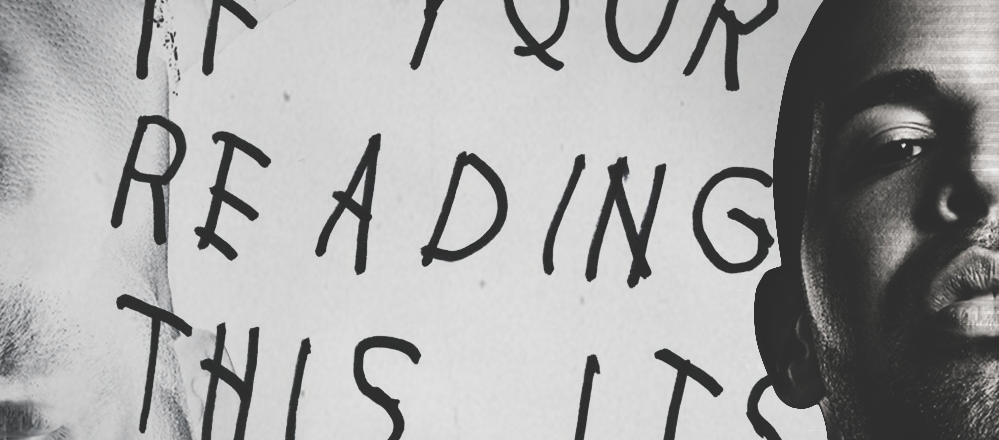 IF YOUR
READING
THIS ITS